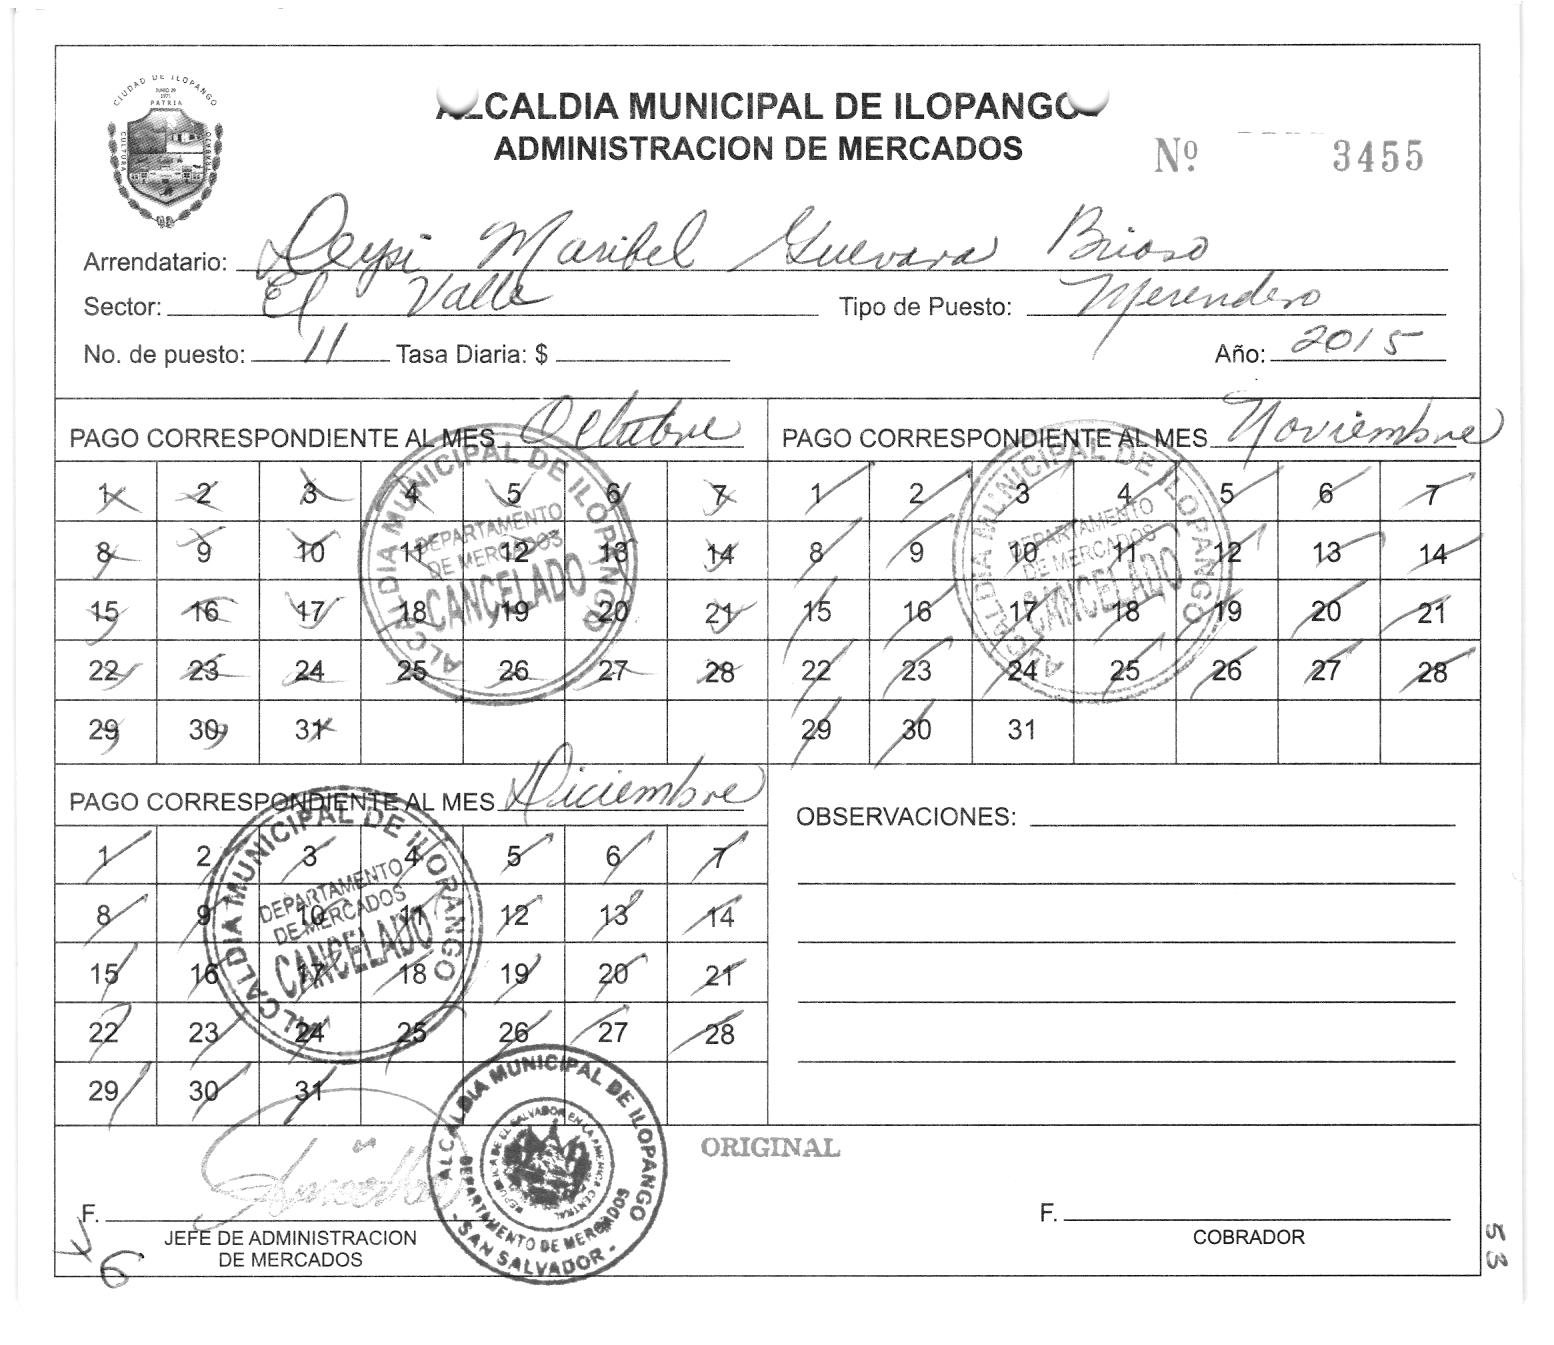 CIUDAD DE ILOPANGO
JUNIO 29
1971
PATRIA
CULTURA
ALCALDIA MUNICIPAL DE ILOPANGO
ADMINISTRACION DE MERCADOS
Nº 3455
Arrendatario: Deysi Maribel Guevara Brioso
Sector: El Valle Tipo de Puesto: Merendero
No. de puesto: 11 Tasa Diaria: $ Año: 2015
PAGO CORRESPONDIENTE AL MES Octubre
1 2 3 4 5 6 7
8 9 10 11 12 13 14
15 16 17 18 19 20 21
22 23 24 25 26 27 28
29 30 31
ALCALDIA MUNICIPAL DE ILOPANGO
DEPARTAMENTO
DE MERCADOS
CANCELADO
PAGO CORRESPONDIENTE AL MES Noviembre
1 2 3 4 5 6 7
8 9 10 11 12 13 14
15 16 17 18 19 20 21
22 23 24 25 26 27 28
29 30 31
ALCALDIA MUNICIPAL DE ILOPANGO
DEPARTAMENTO
DE MERCADOS
CANCELADO
PAGO CORRESPONDIENTE AL MES Diciembre
1 2 3 4 5 6 7
8 9 10 11 12 13 14
15 16 17 18 19 20 21
22 23 24 25 26 27 28
29 30 31
ALCALDIA MUNICIPAL DE ILOPANGO
DEPARTAMENTO
DE MERCADOS
CANCELADO
OBSERVACIONES:
ORIGINAL
F.
JEFE DE ADMINISTRACION
DE MERCADOS
ALCALDIA MUNICIPAL DE ILOPANGO
REPUBLICA DE EL SALVADOR EN LA AMERICA CENTRAL
DEPARTAMENTO DE MERCADOS
- SAN SALVADOR -
F.
COBRADOR
53